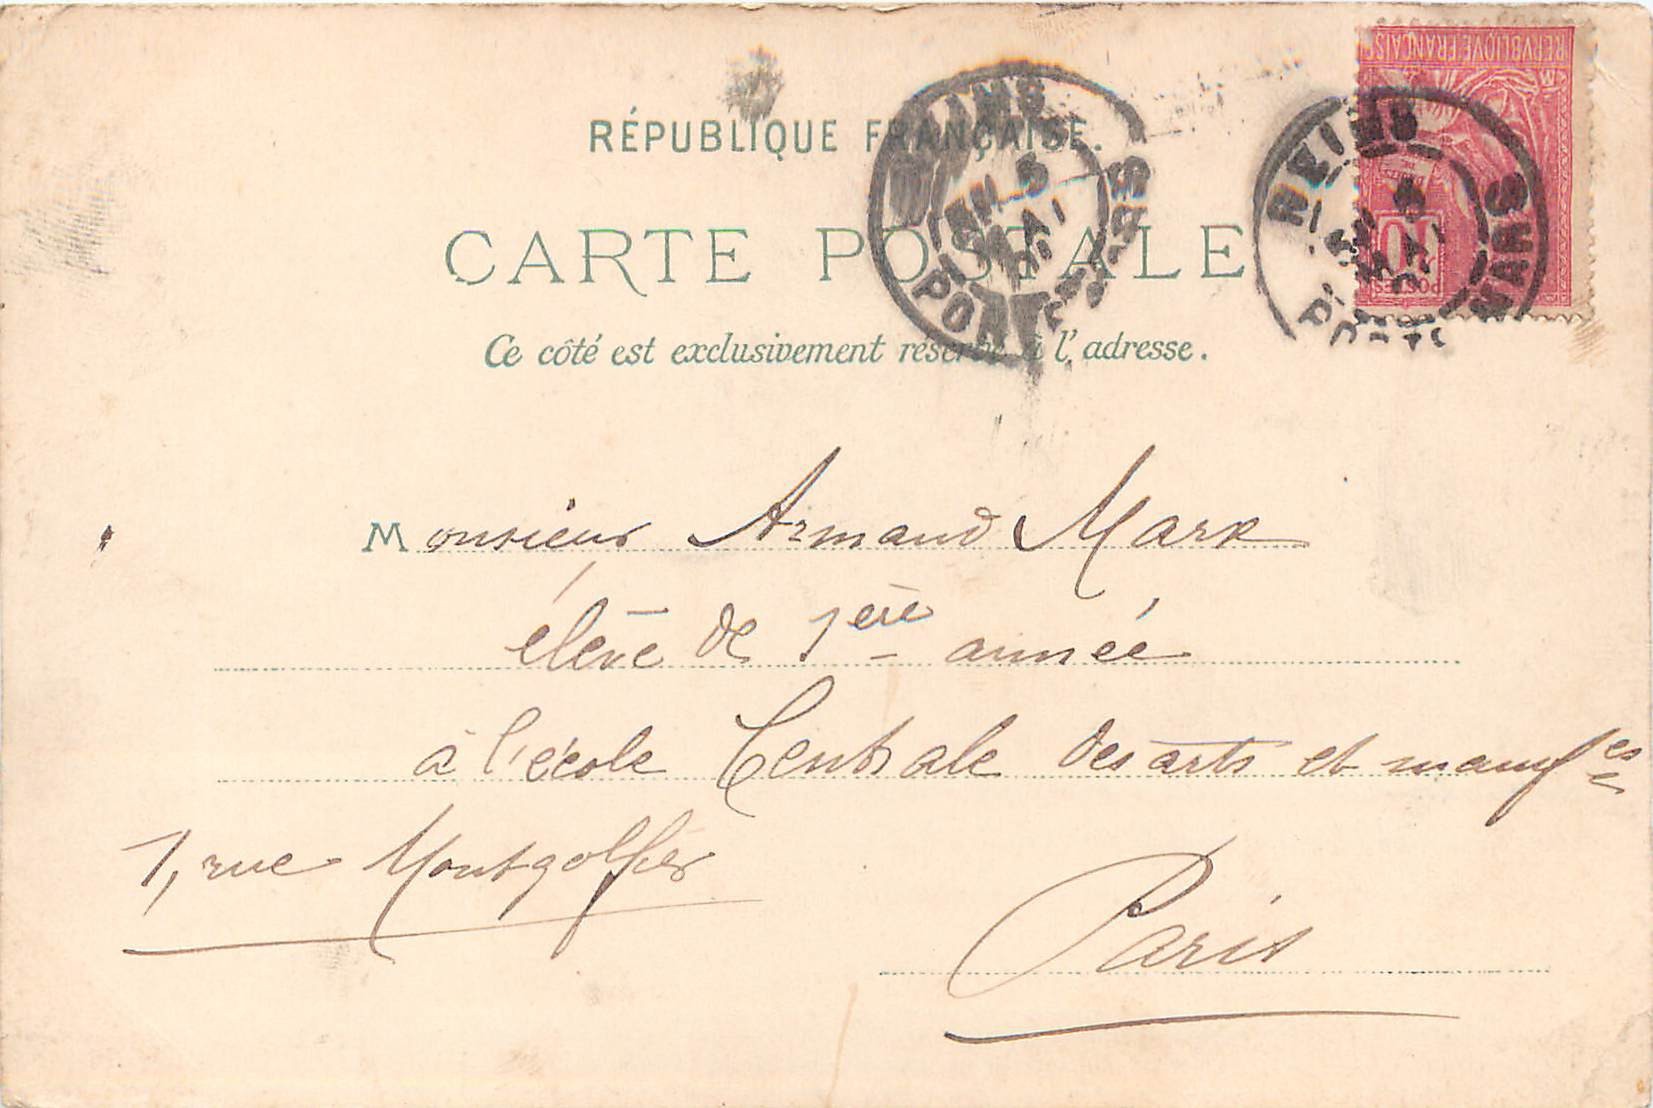 RÉPUBLIQUE FRANÇAISE.
CARTE POSTALE
Ce côté est exclusivement réservé à l'adresse.
REPVBLIQVE FRANÇAISE
10
POSTES
REIMS
5
MAI
01
PORTE-MARS
REIMS
MAI
PORTE MARS
Monsieur Armand Marx
élève de 1ère année
à l'école Centrale des arts et manufces
1, rue Montgolfier
Paris